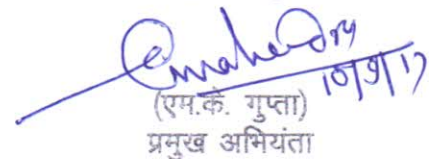 10/9/17
(एम.के. गुप्ता)
प्रमुख अभियंता